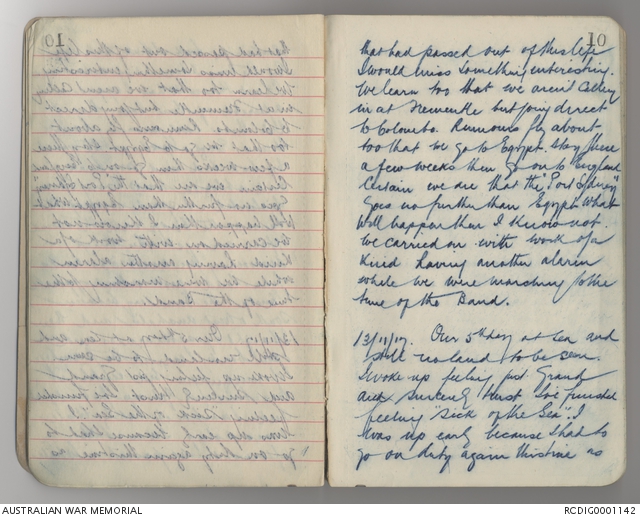 10
that had passed out of this life
I would miss something interesting.
We learn too that we aren't calling
in at Fremantle but going direct
to Colombo. Rumours fly about
too that we go to Egypt stay there
a few weeks then go on to England
Certain we are that the "Port Sydney"
goes no further than Egypt. What
will happen then I know not.
We carried on with work of a
kind having another alarm
while we were marching to the
tune of the Band.
13/11/17. Our 5th day at sea and
still no land to be seen.
I woke up feeling just Grand
and sincerely trust I've finished
feeling "Sick of the Sea". I
was up early because I had to
go on duty again this time as
AUSTRALIAN WAR MEMORIAL
RCDIG0001142